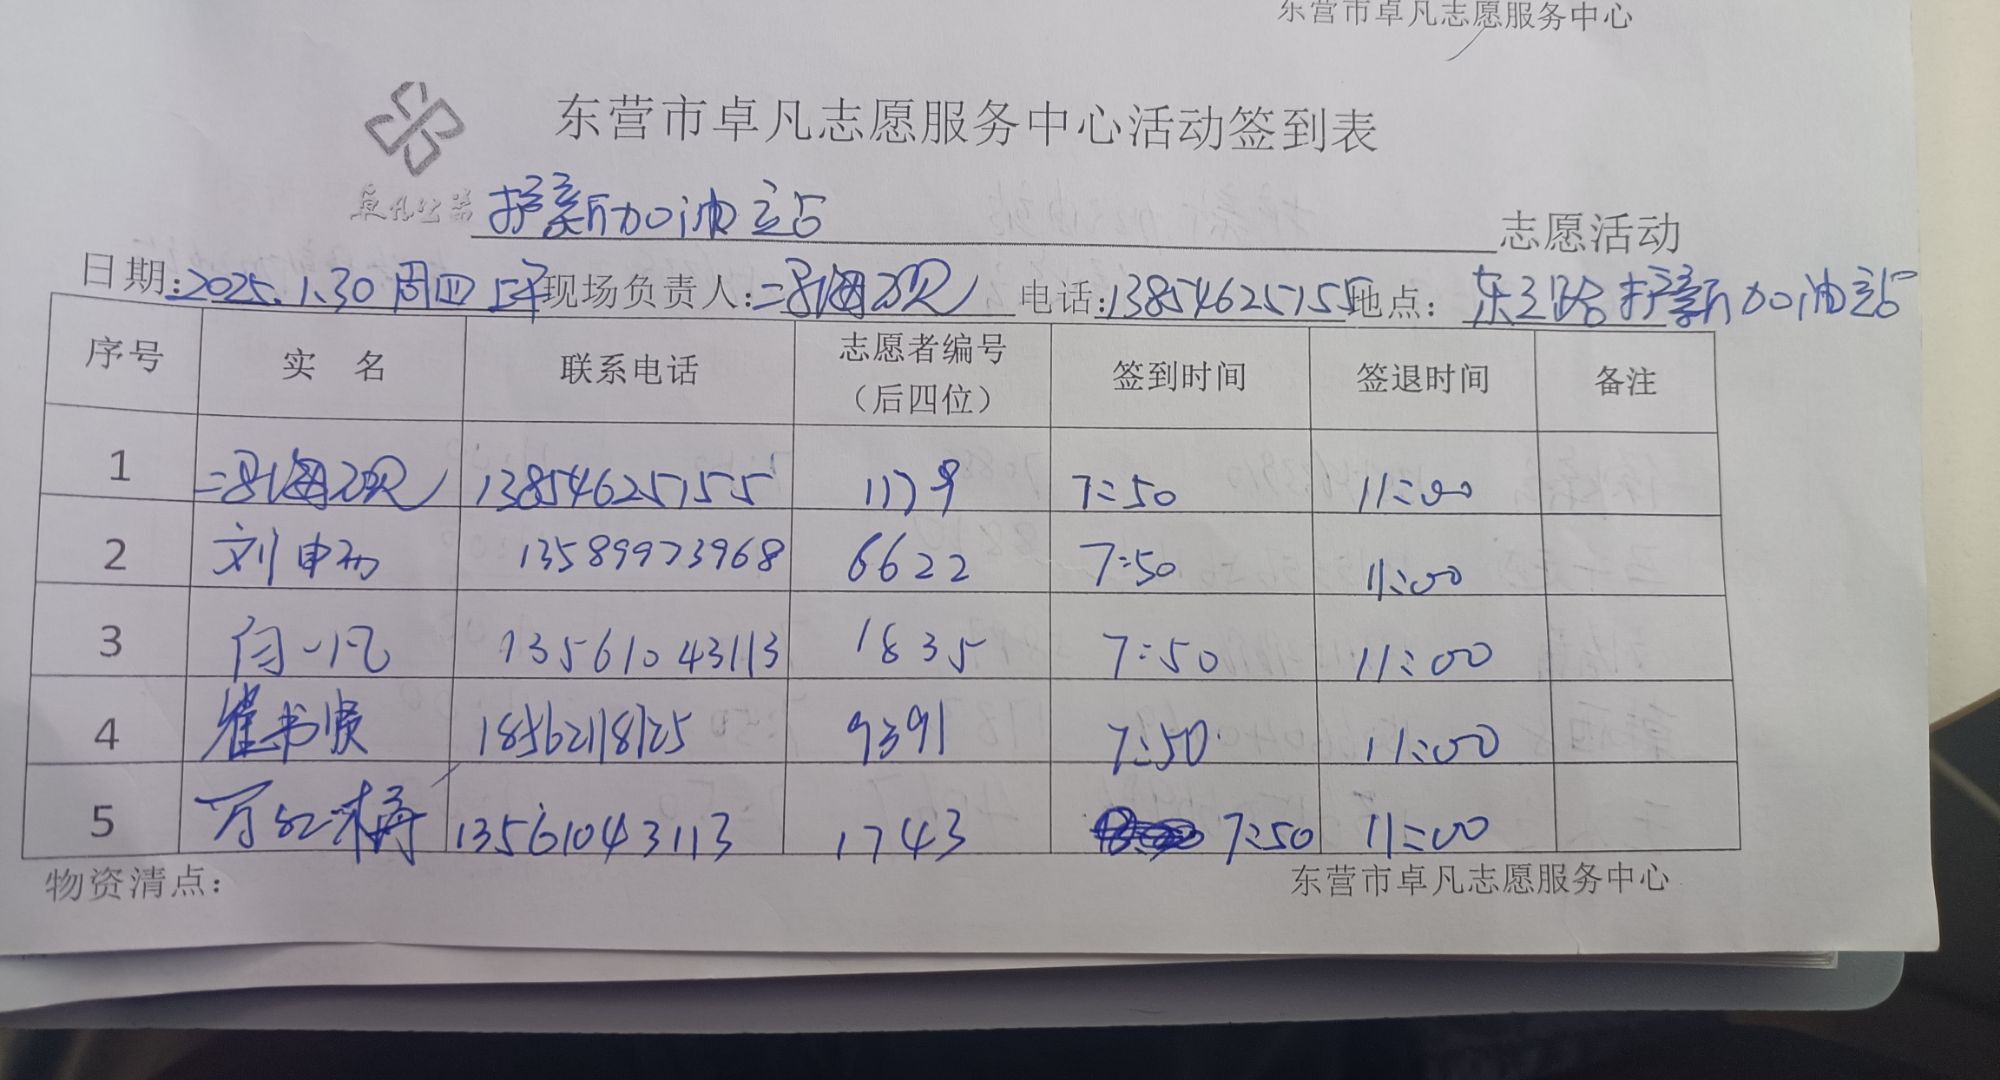 东营市卓凡志愿服务中心
东营市卓凡志愿服务中心活动签到表
卓凡公益 护新加油站 志愿活动
日期:2025.1.30 周四 上午 现场负责人: 电话:13854625155 地点: 东三路护新加油站
序号 实 名 联系电话 志愿者编号（后四位） 签到时间 签退时间 备注
1 13854625155 1179 7:50 11:00
2 刘申 13589973968 6622 7:50 11:00
3 闫一凡 13561043113 1835 7:50 11:00
4 崔书贤 18562118125 9391 7:50 11:00
5 万红梅 13561043113 1743 7:50 11:00
物资清点: 东营市卓凡志愿服务中心